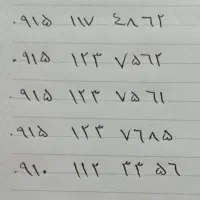 ۰۹۱۵ ۱۱۷ ۴۸۶۲
۰۹۱۵ ۱۲۳ ۷۵۶۲
۰۹۱۵ ۱۲۳ ۷۵۶۱
۰۹۱۵ ۱۲۳ ۷۶۸۵
۰۹۱۰ ۱۱۲ ۳۳۵۶